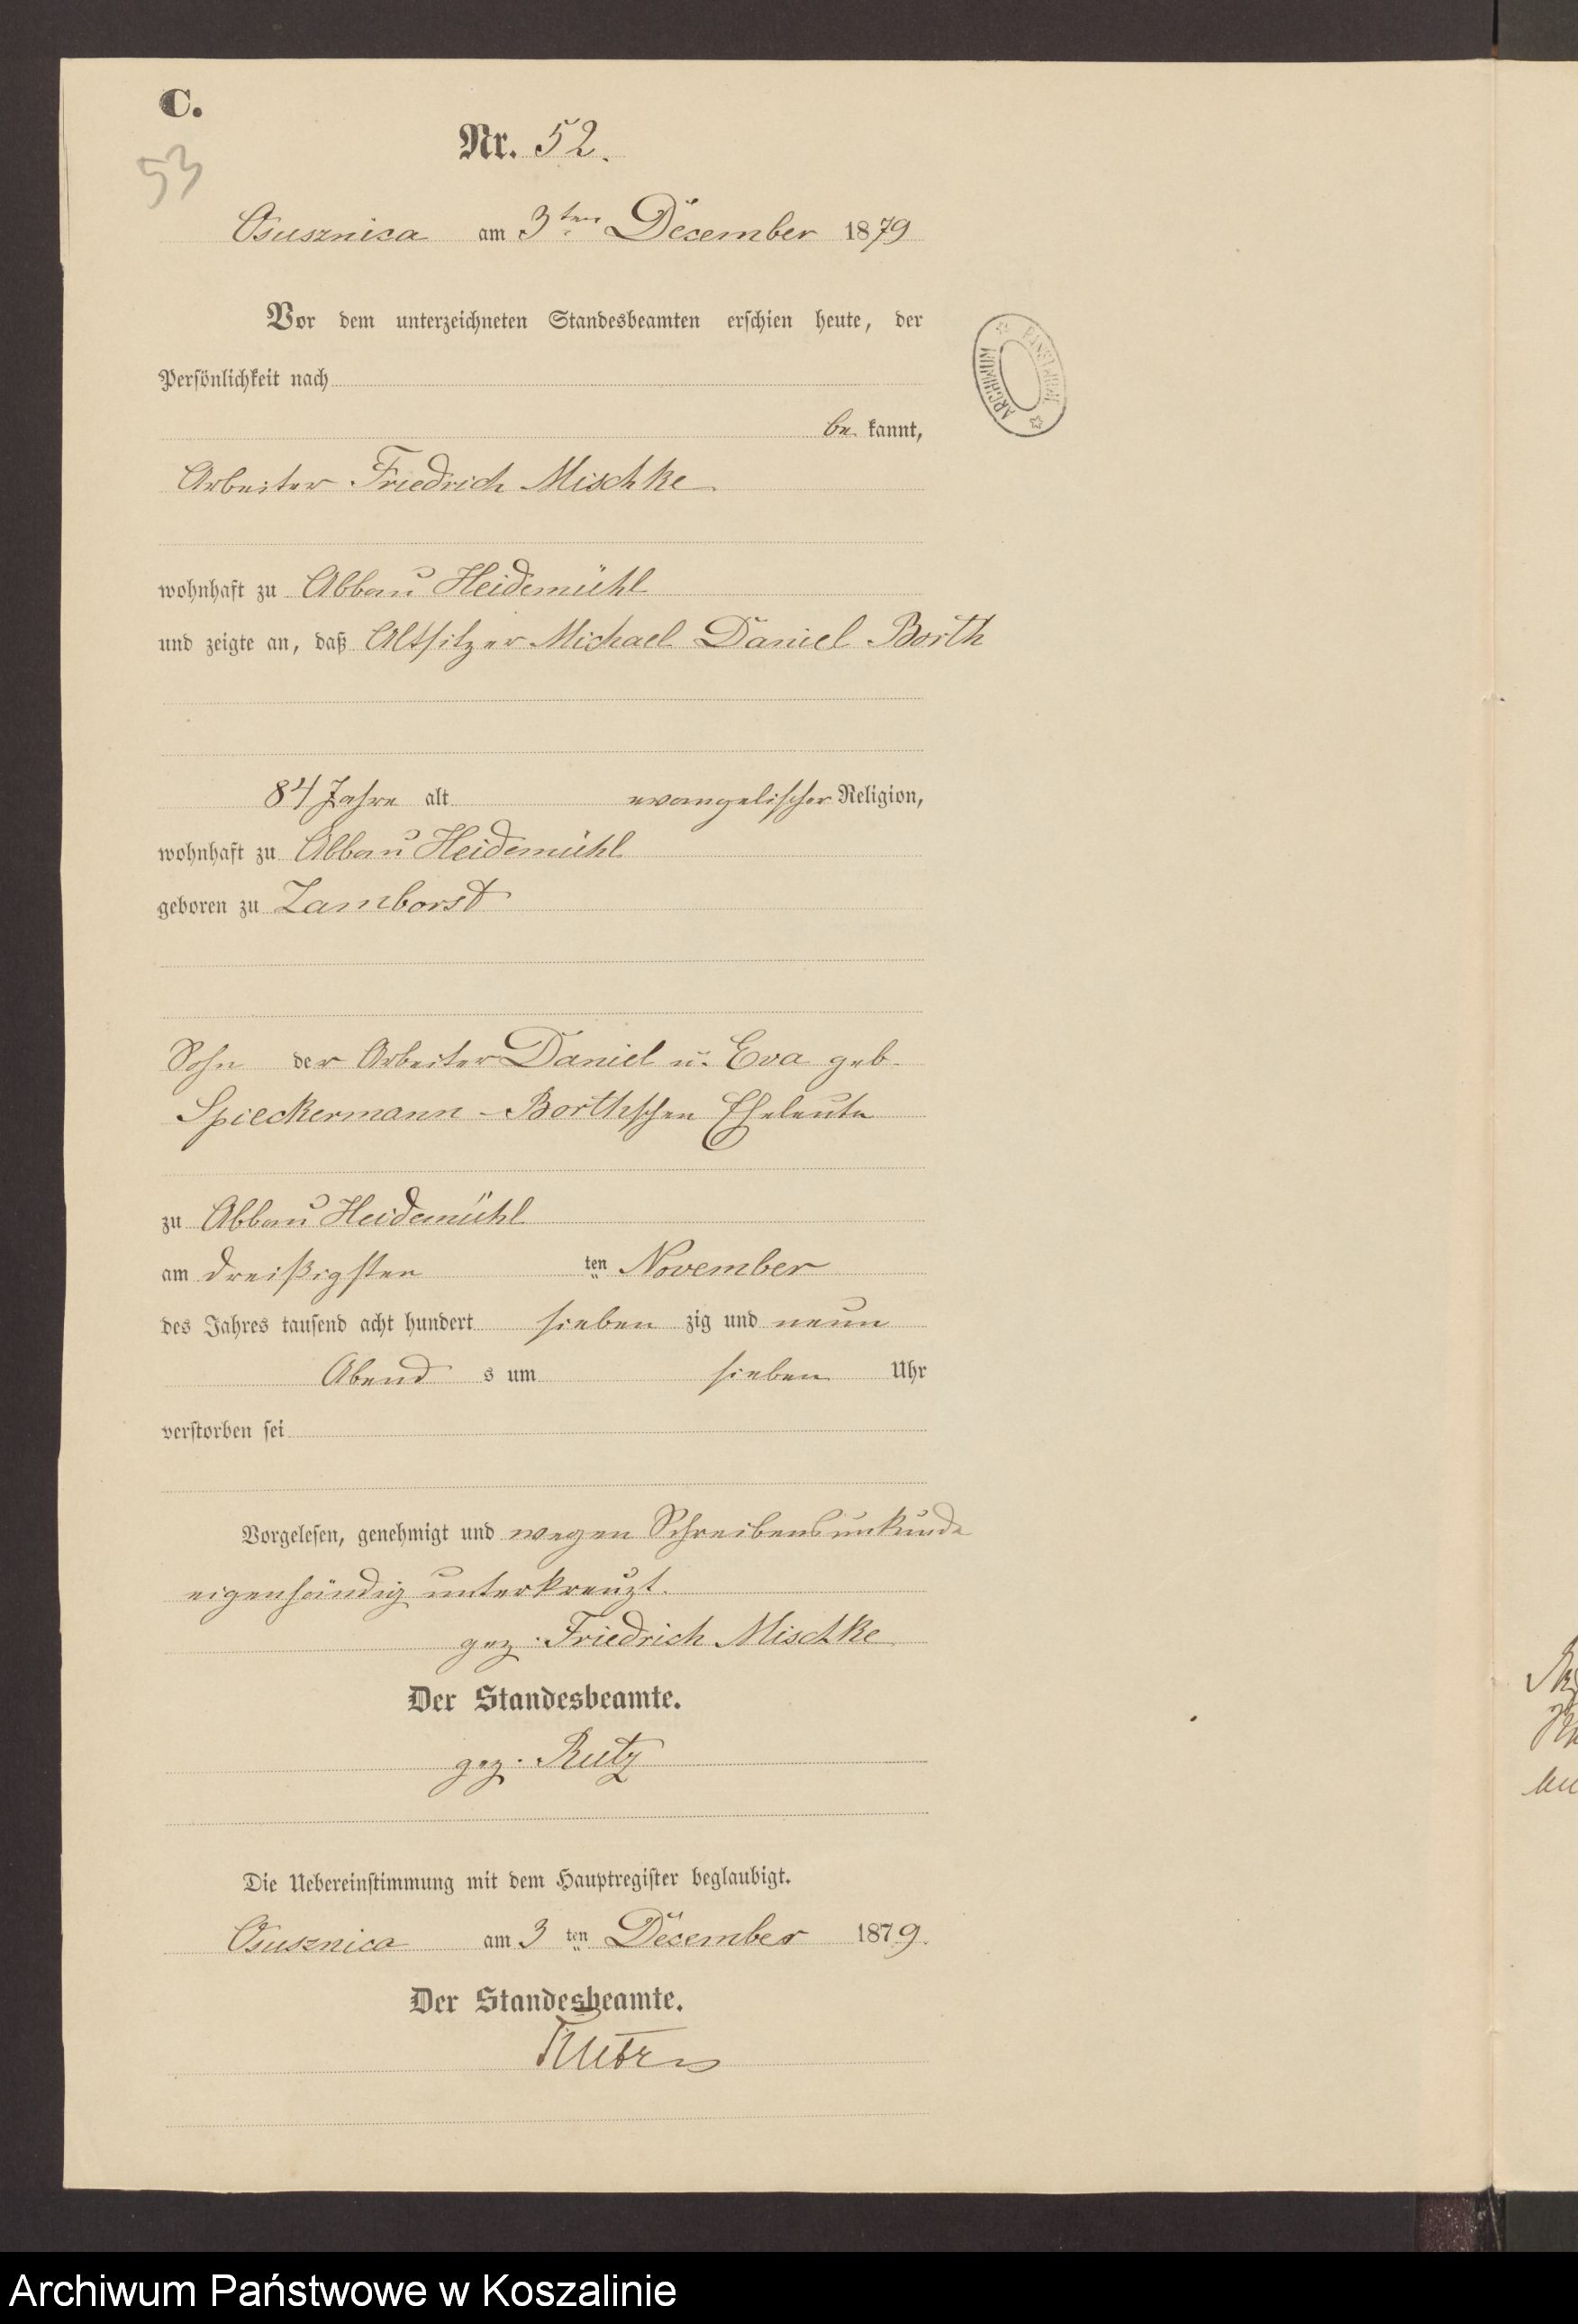 C.
Nr. 52.
53
Osusznica am 3ten December 1879
Vor dem unterzeichneten Standesbeamten erschien heute, der
Persönlichkeit nach
be kannt,
Arbeiter Friedrich Mischke
wohnhaft zu Abbau Heidemühl
und zeigte an, daß Altsitzer Michael Daniel Borth
84 Jahre alt evangelischer Religion,
wohnhaft zu Abbau Heidemühl
geboren zu Zamborst
Sohn der Arbeiter Daniel u. Eva geb.
Spieckermann - Borthschen Eheleute
zu Abbau Heidemühl
am dreißigsten ten November
des Jahres tausend acht hundert sieben zig und neun
Abend s um sieben Uhr
verstorben sei
Vorgelesen, genehmigt und wegen Schreibensunkunde
eigenhändig unterkreuzt.
gez. Friedrich Mischke
Der Standesbeamte.
gez. Rutz
Die Uebereinstimmung mit dem Hauptregister beglaubigt.
Osusznica am 3 ten December 1879.
Der Standesbeamte.
ARCHIWUM PAŃSTWOWE
Archiwum Państwowe w Koszalinie